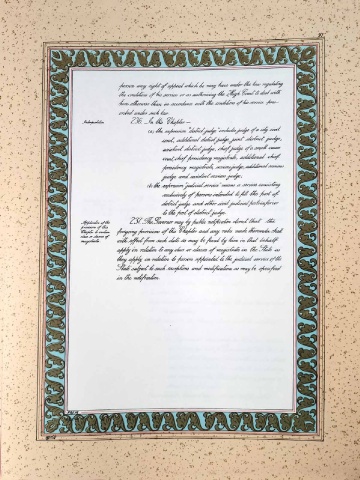 97
person any right of appeal which he may have under the law regulating
the condition of his service or as authorising the High Court to deal with
him otherwise than in accordance with the conditions of his service pres-
cribed under such law.
Interpretation
236. In this Chapter —
(a) the expression "district judge" includes judge of a city civil
court, additional district judge, joint district judge,
assistant district judge, chief judge of a small cause
court, chief presidency magistrate, additional chief
presidency magistrate, sessions judge, additional sessions
judge and assistant sessions judge;
(b) the expression "judicial service" means a service consisting
exclusively of persons intended to fill the post of
district judge and other civil judicial posts inferior
to the post of district judge.
Application of the
provisions of this
Chapter to certain
class or classes of
magistrates
237. The Governor may by public notification direct that the
foregoing provisions of this Chapter and any rules made thereunder shall
with effect from such date as may be fixed by him in that behalf
apply in relation to any class or classes of magistrates in the State as
they apply in relation to persons appointed to the judicial service of the
State subject to such exceptions and modifications as may be specified
in the notification.